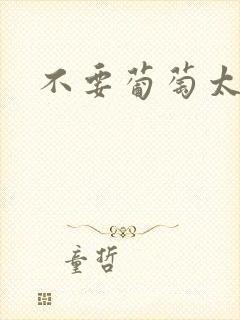 不要葡萄太
童哲